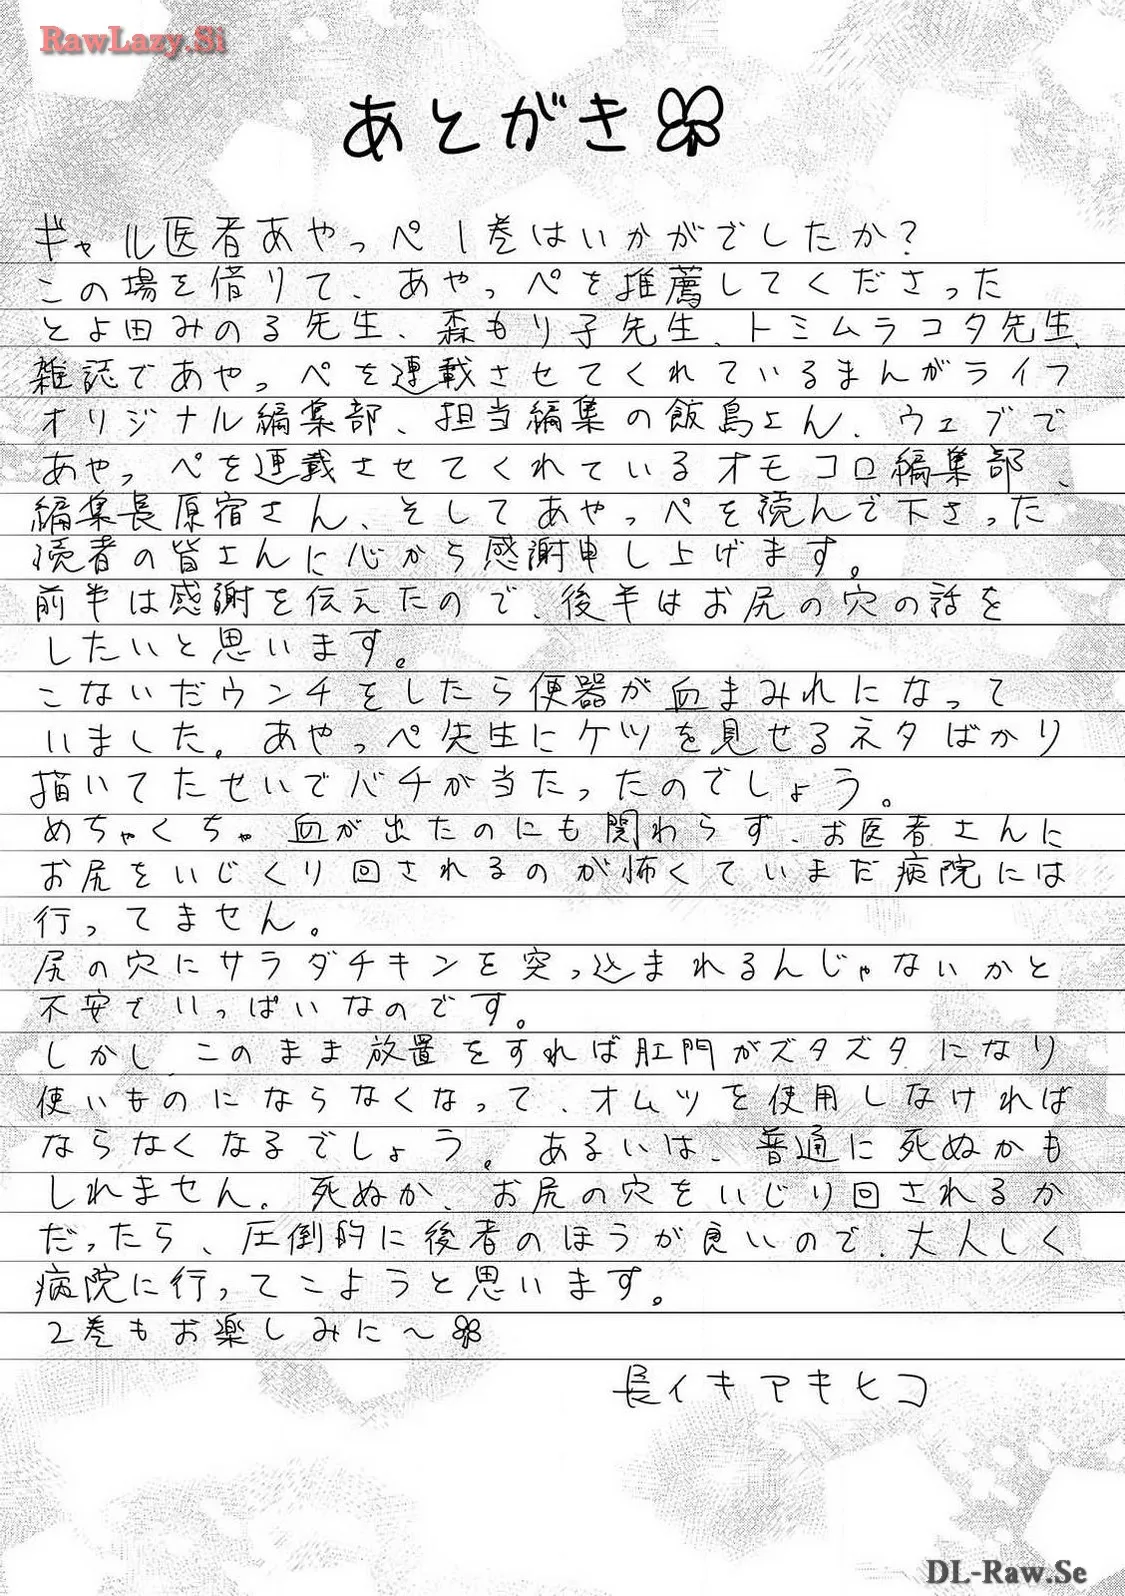 RawLazy.Si
あとがき
ギャル医者あやっぺ1巻はいかがでしたか?
この場を借りて、あやっぺを推薦してくださった
とよ田みのる先生、森もり子先生、トミムラコタ先生、
雑誌であやっぺを連載させてくれているまんがライフ
オリジナル編集部、担当編集の飯島さん、ウェブで
あやっぺを連載させてくれているオモコロ編集部、
編集長原宿さん、そしてあやっぺを読んで下さった
読者の皆さんに心から感謝申し上げます。
前半は感謝を伝えたので、後半はお尻の穴の話を
したいと思います。
こないだウンチをしたら便器が血まみれになって
いました。あやっぺ先生にケツを見せるネタばかり
描いてたせいでバチが当たったのでしょう。
めちゃくちゃ血が出たのにも関わらず、お医者さんに
お尻をいじくり回されるのが怖くていまだ病院には
行ってません。
尻の穴にサラダチキンを突っ込まれるんじゃないかと
不安でいっぱいなのです。
しかし、このまま放置をすれば肛門がズタズタになり
使いものにならなくなって、オムツを使用しなければ
ならなくなるでしょう。あるいは、普通に死ぬかも
しれません。死ぬか、お尻の穴をいじり回されるか
だったら、圧倒的に後者のほうが良いので、大人しく
病院に行ってこようと思います。
2巻もお楽しみに〜
長イキアキヒコ
DL-Raw.Se